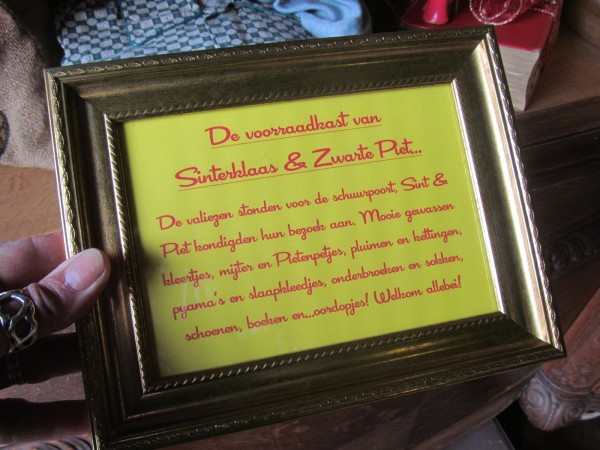 De voorraadkast van
Sinterklaas & Zwarte Piet...
De valiezen stonden voor de schuurpoort, Sint &
Piet kondigden hun bezoek aan. Mooie gewassen
kleertjes, mijter en Pietenpetjes, pluimen en kettingen,
pyama's en slaapkleedjes, onderbroeken en sokken,
schoenen, boeken en...oordopjes! Welkom allebei!